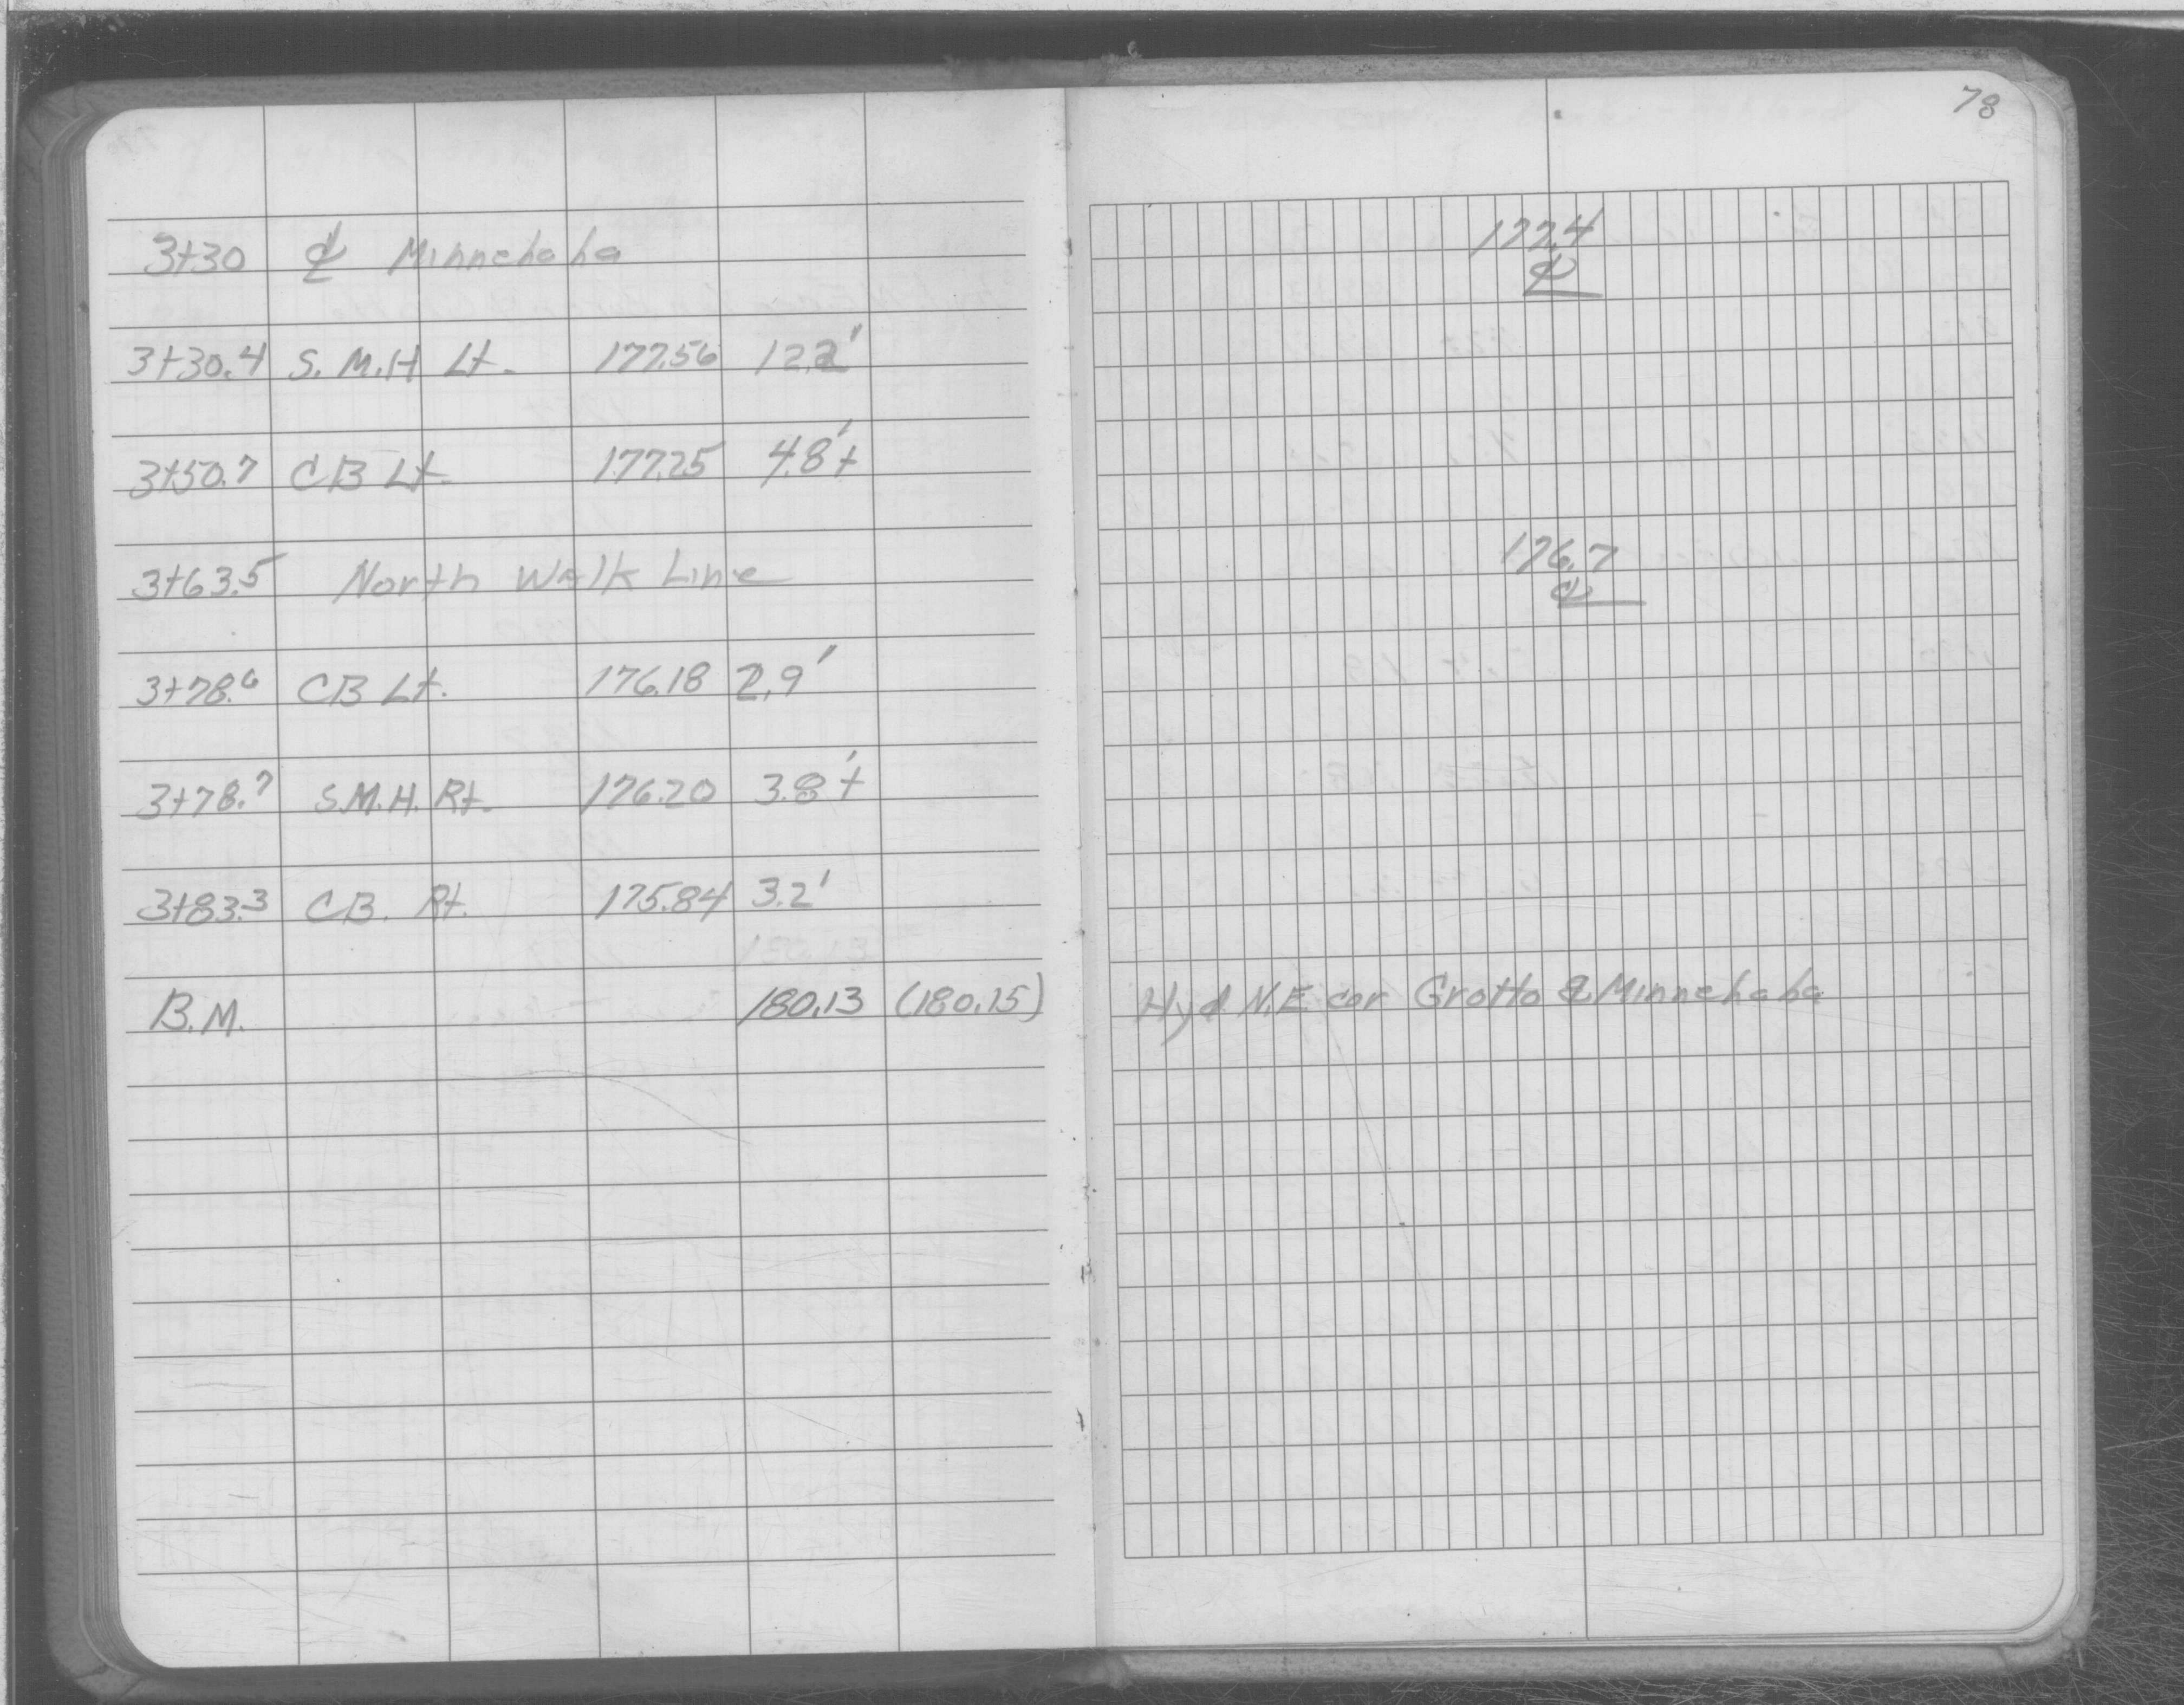 78
3+30 ℄ Minnehaha 177.4
℄
3+30.4 S.M.H Lt. 177.56 12.2'
3+50.7 CB Lt. 177.25 4.8'±
3+63.5 North Walk Line 176.7
℄
3+78.6 CB Lt. 176.18 2.9'
3+78.7 S.M.H. Rt. 176.20 3.8'±
3+83.3 CB. Rt. 175.84 3.2'
B.M. 180.13 (180.15) Hyd. N.E. cor Grotto & Minnehaha